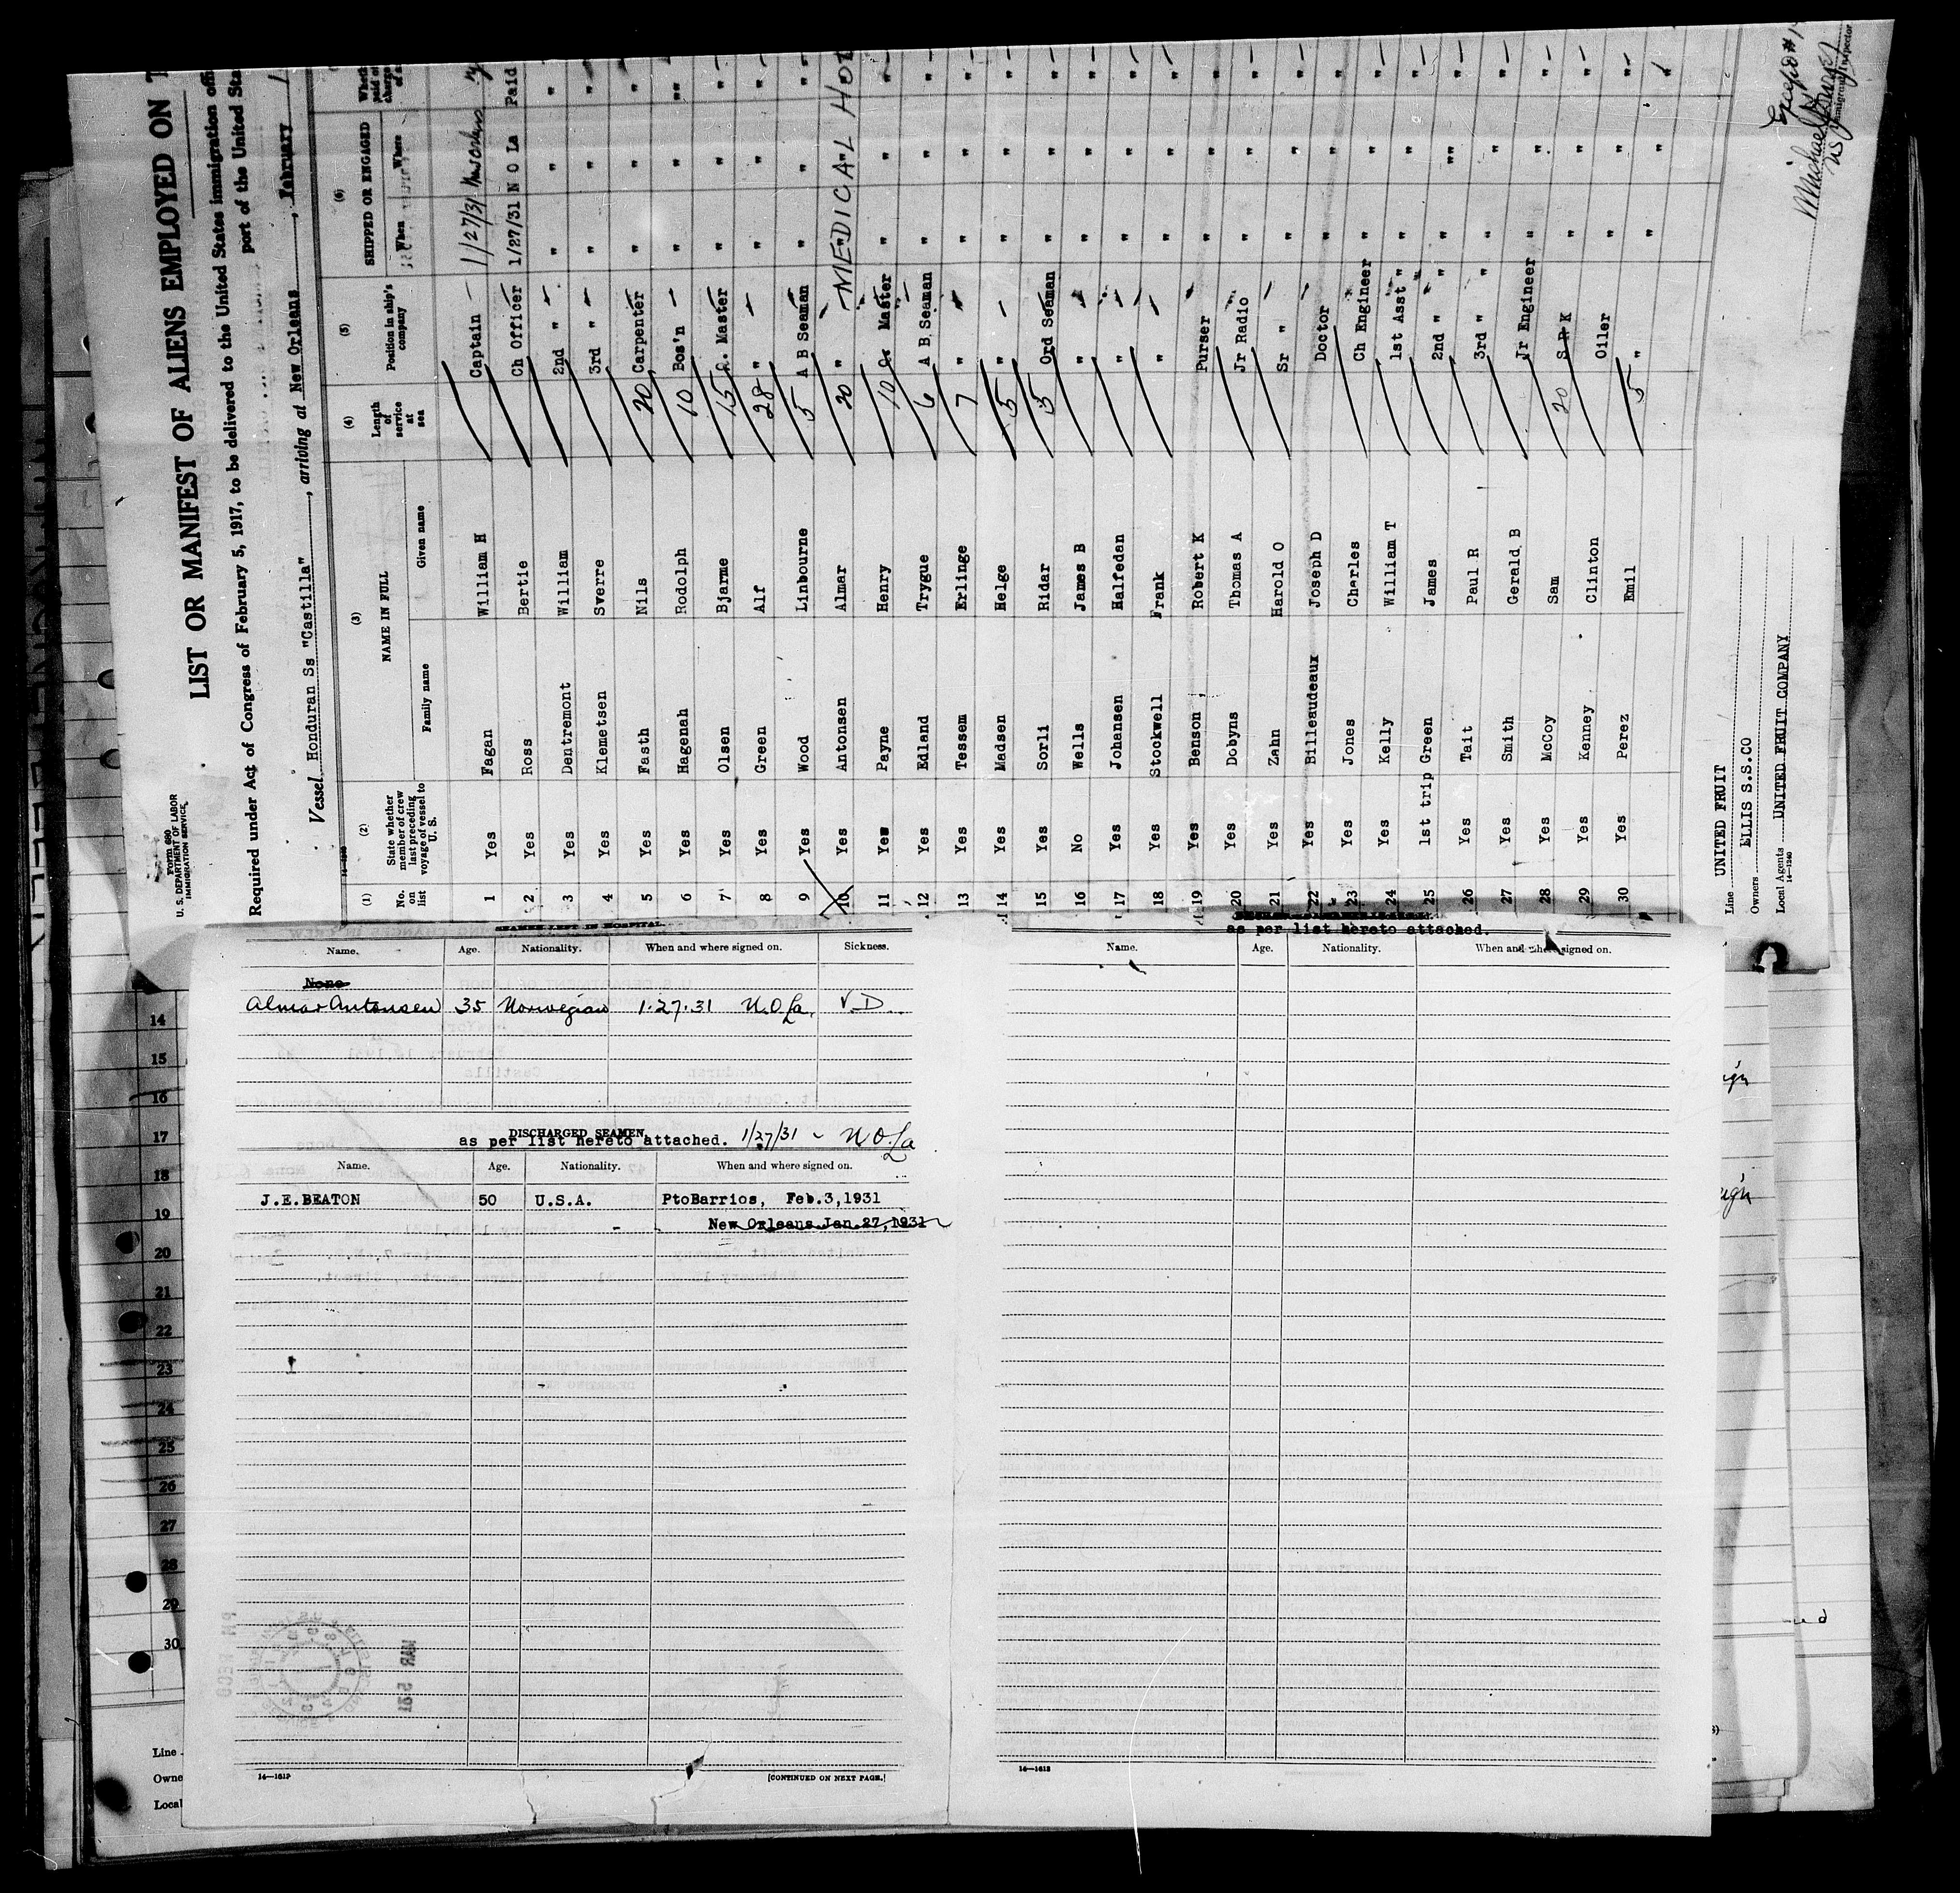 Form 680
U. S. DEPARTMENT OF LABOR
IMMIGRATION SERVICE
LIST OR MANIFEST OF ALIENS EMPLOYED ON
Required under Act of Congress of February 5, 1917, to be delivered to the United States immigration
port of the United
Vessel Honduran Ss "Castilla", arriving at New Orleans, February
(1) (2) (3) (4) (5) (6)
No. on list State whether member of crew last preceding voyage of vessel to U. S. NAME IN FULL Length of service at sea Position in ship's company SHIPPED OR ENGAGED
Family name Given name When Where
1 Yes Fagan William H Captain 1/27/31 New Orleans
2 Yes Ross Bertie Ch Officer 1/27/31 N O La Paid
3 Yes Dentremont William 2nd " " " "
4 Yes Klemetsen Sverre 3rd " " " "
5 Yes Fasth Nils 20 Carpenter " " "
6 Yes Hagenah Rodolph 10 Bos'n " " "
7 Yes Olsen Bjarme 15 Q. Master " " "
8 Yes Green Alf 28 " " " "
9 Yes Wood Linbourne 5 A B Seaman " " "
10 Yes Antonsen Almar 20 " MEDICAL
11 Yes Payne Henry 10 Q. Master " " "
12 Yes Edland Trygue 6 A B Seaman " " "
13 Yes Tessem Erlinge 7 " " " "
14 Yes Madsen Helge 5 " " " "
15 Yes Sorli Ridar 5 Ord Seaman " " "
16 No Wells James B " " " "
17 Yes Johansen Halfedan " " " "
18 Yes Stockwell Frank " " " "
19 Yes Benson Robert K Purser " " "
20 Yes Dobyns Thomas A Jr Radio " " "
21 Yes Zahn Harold O Sr " " " "
22 Yes Billeaudeaux Joseph D Doctor " " "
23 Yes Jones Charles Ch Engineer " " "
24 Yes Kelly William T 1st Asst " " " "
25 1st trip Green James 2nd " " " " "
26 Yes Tait Paul R 3rd " " " " "
27 Yes Smith Gerald B Jr Engineer " " "
28 Yes McCoy Sam 20 S P K " " "
29 Yes Kenney Clinton Oiler " " "
30 Yes Perez Emil 5 " " " "
Line UNITED FRUIT
Owners ELLIS S.S.CO
Local Agents UNITED FRUIT COMPANY
14-1240
Immigrant Inspector
SEAMEN LEFT IN HOSPITAL.
Name. Age. Nationality. When and where signed on. Sickness.
None
Almar Antonsen 35 Norwegian 1.27.31 N.O.La. V.D.
DISCHARGED SEAMEN.
as per list hereto attached. 1/27/31 - N O. La
Name. Age. Nationality. When and where signed on.
J.E.BEATON 50 U.S.A. PtoBarrios, Feb.3,1931
New Orleans Jan.27,1931
14—1613
[CONTINUED ON NEXT PAGE.]
as per list hereto attached.
Name. Age. Nationality. When and where signed on.
14—1613
14
15
16
17
18
19
20
21
22
23
24
25
26
27
28
29
30
Line
Owne
Local